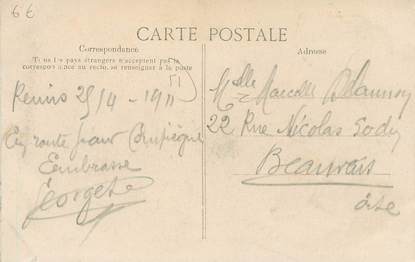 6€
CARTE POSTALE
Correspondance
Tous les pays étrangers n'acceptent pas la
correspondance au recto, se renseigner à la poste
Adresse
51
Reims 25/4 - 1911
En route pour Compiègne
Embrasse
Georgete
Melle Marcelle Delaunay
22 Rue Nicolas Gody
Beauvais
Oise